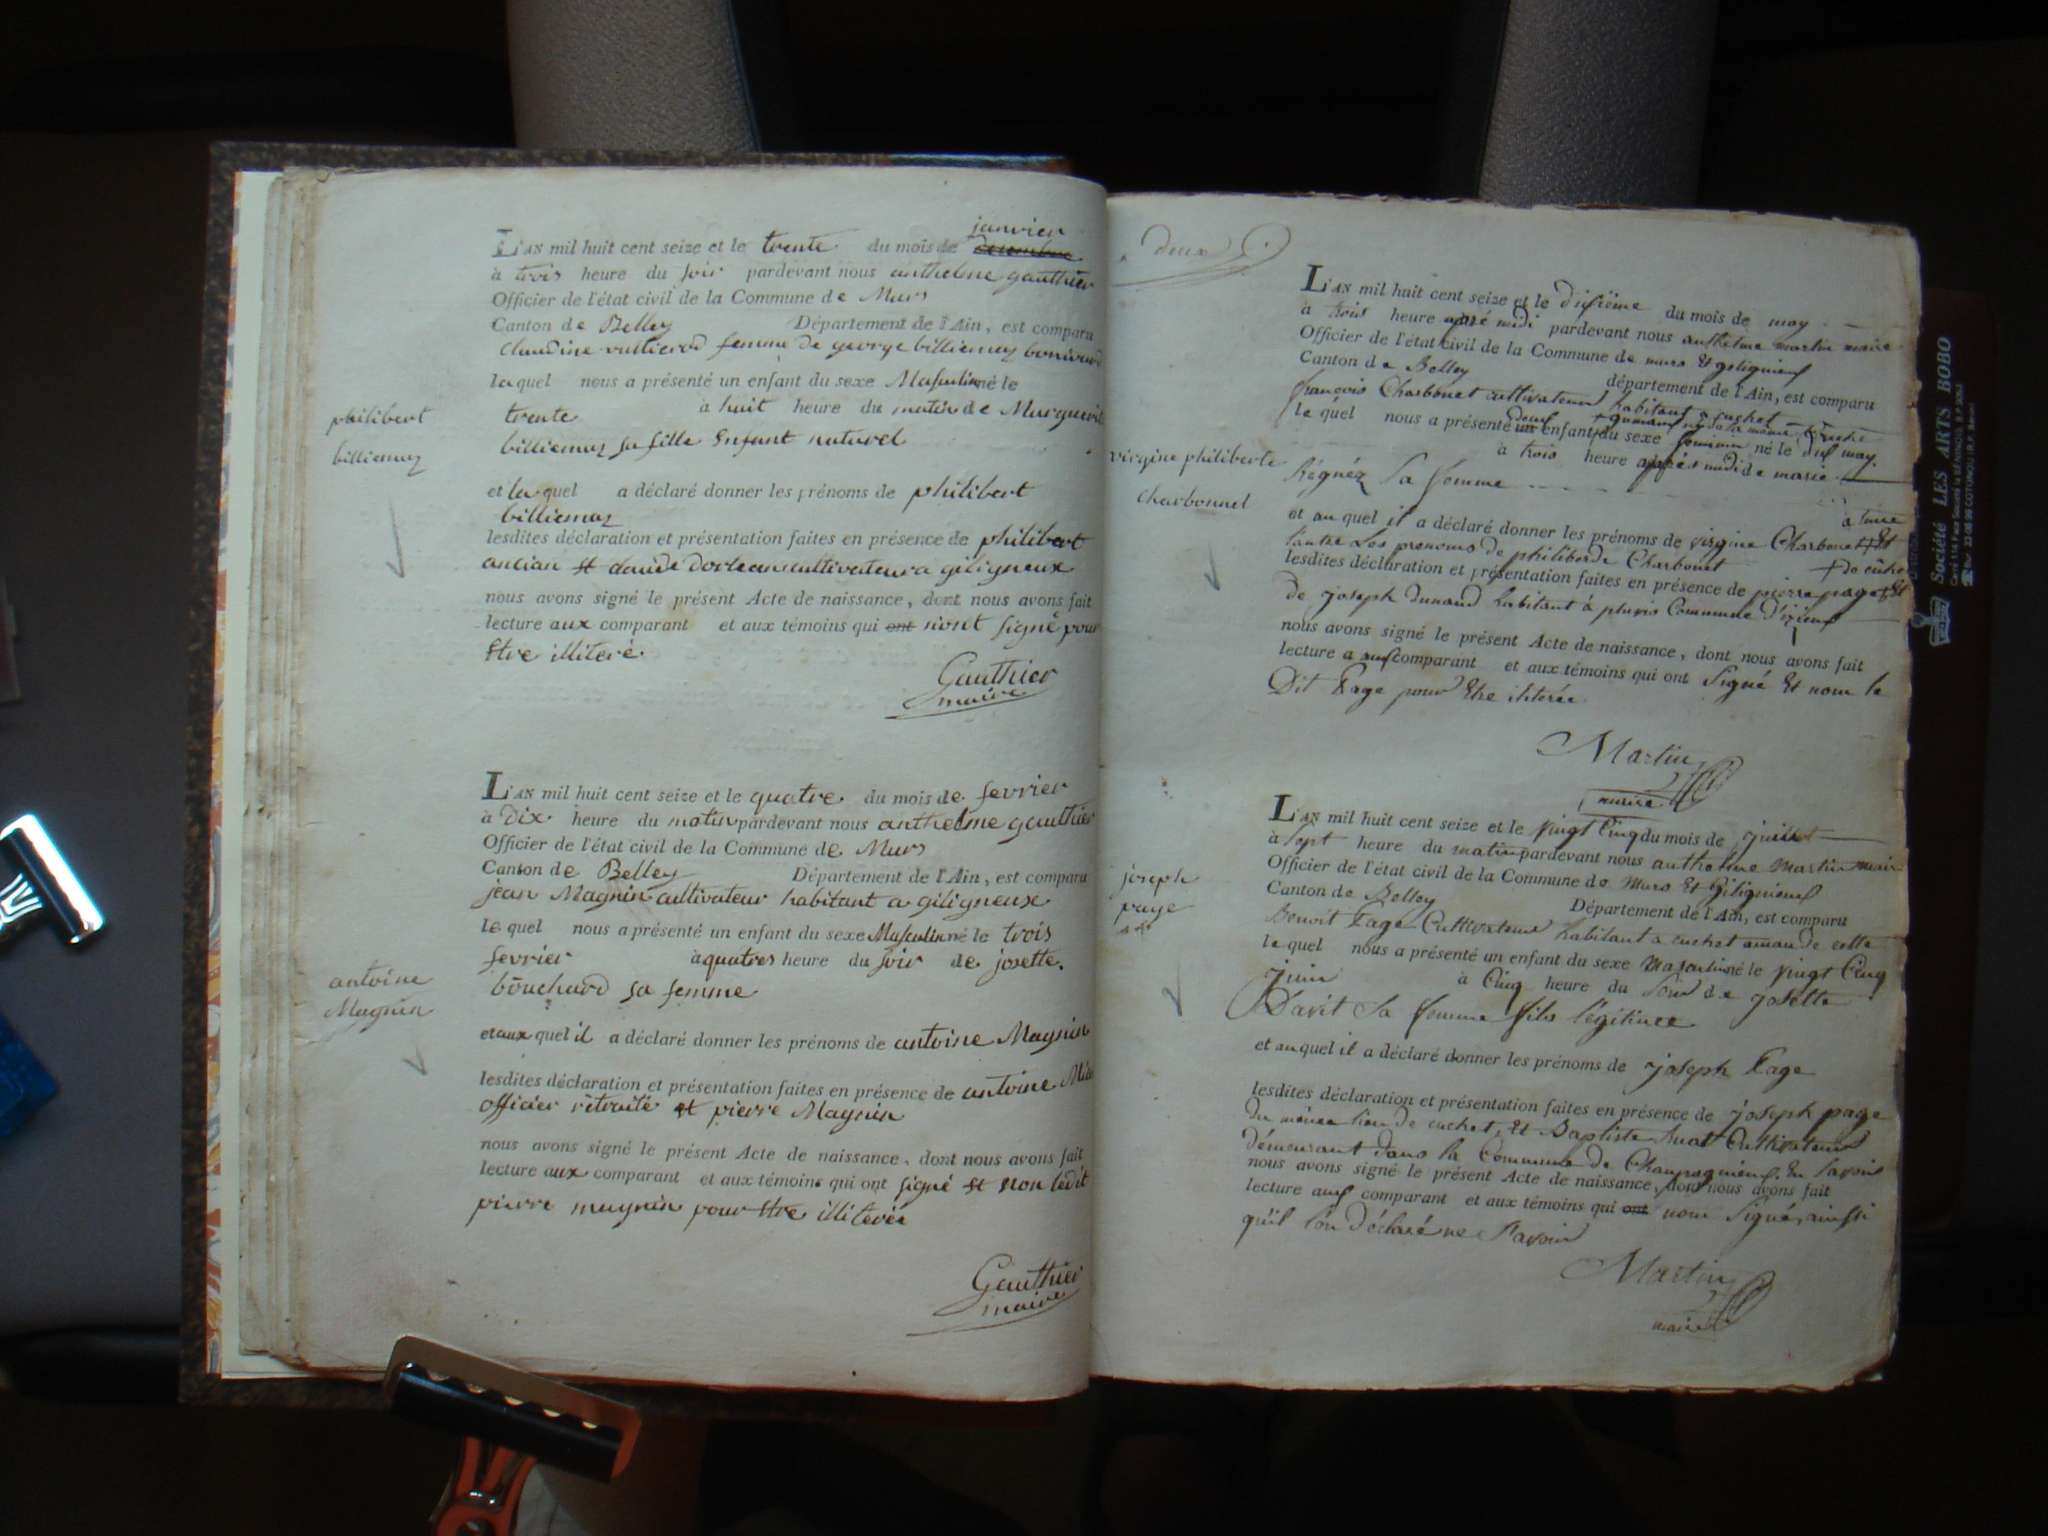 janvier
L'AN mil huit cent seize et le trente du mois de decembre
à trois heure du soir pardevant nous anthelme gauthier
Officier de l'état civil de la Commune de Murs
Canton de Belley Département de l'Ain, est comparu
Claudine femme de george billiemaz
laquel nous a présenté un enfant du sexe Masculin né le
trente à huit heure du matin de Marguerite
billiemaz sa fille Enfant naturel
philibert
billiemaz
et laquel a déclaré donner les prénoms de philibert
billiemaz
lesdites déclaration et présentation faites en présence de philibert
ancian et claude dorlean cultivateur a giligneux
nous avons signé le présent Acte de naissance, dont nous avons fait
lecture aux comparant et aux témoins qui ont n'ont signé pour
Etre illiteré.
Gauthier
maire
L'AN mil huit cent seize et le quatre du mois de fevrier
à Dix heure du matin pardevant nous anthelme gauthier
Officier de l'état civil de la Commune de Murs
Canton de Belley Département de l'Ain, est comparu
jean Magnin cultivateur habitant a giligneux
le quel nous a présenté un enfant du sexe Masculin né le trois
fevrier à quatres heure du soir de josette
bouchard sa femme
antoine
Magnin
et aux quel il a déclaré donner les prénoms de antoine Magnin
lesdites déclaration et présentation faites en présence de antoine
officier rétraité et pierre Magnin
nous avons signé le présent Acte de naissance, dont nous avons fait
lecture aux comparant et aux témoins qui ont signé et non ledit
pierre magnin pour Etre illiterée
Gauthier
maire
deux
L'AN mil huit cent seize et le dixième du mois de may
à trois heure apré midi pardevant nous anthelme martin maire
Officier de l'état civil de la Commune de murs Et geligneux
Canton de Belley département de l'Ain, est comparu
françois Charbonet cultivateur habitant a cuchet
le quel nous a présenté un deux enfant du sexe feminin né le dix may
à trois heure après midi de marie
Regnéz sa femme
virgine philiberte
charbonnel
a lune
et au quel il a déclaré donner les prénoms de virgine Charbonet Et
lautre Les prenoms de philiberde Charbonet
lesdites déclaration et présentation faites en présence de pierre page Et
de joseph dunand habitant à Commune d'izieux
nous avons signé le présent Acte de naissance, dont nous avons fait
lecture a aux comparant et aux témoins qui ont Signé Et nom le
Dit Page pour Etre iliterée
Martin
maire
L'AN mil huit cent seize et le vingt Cinq du mois de
à Sept heure du matin pardevant nous anthelme Martin maire
Officier de l'état civil de la Commune de Murs Et Gilignieux
Canton de Belley Département de l'Ain, est comparu
Benoit Page Cultivateur habitant a cuchet amau de cette
le quel nous a présenté un enfant du sexe Masculin né le vingt Cinq
juin à Cinq heure du Soir de josette
Davit Sa femme fils légitime
joseph
page
et au quel il a déclaré donner les prénoms de joseph Page
lesdites déclaration et présentation faites en présence de joseph page
du même lieu de cuchet, Et Baptiste Cultivateur
démeurant dans la Commune de
nous avons signé le présent Acte de naissance, dont nous avons fait
lecture aux comparant et aux témoins qui ont nom Signé, ainssi
qu'il l'on déclaré ne Savoir
Martin
maire
Société LES ARTS BOBO